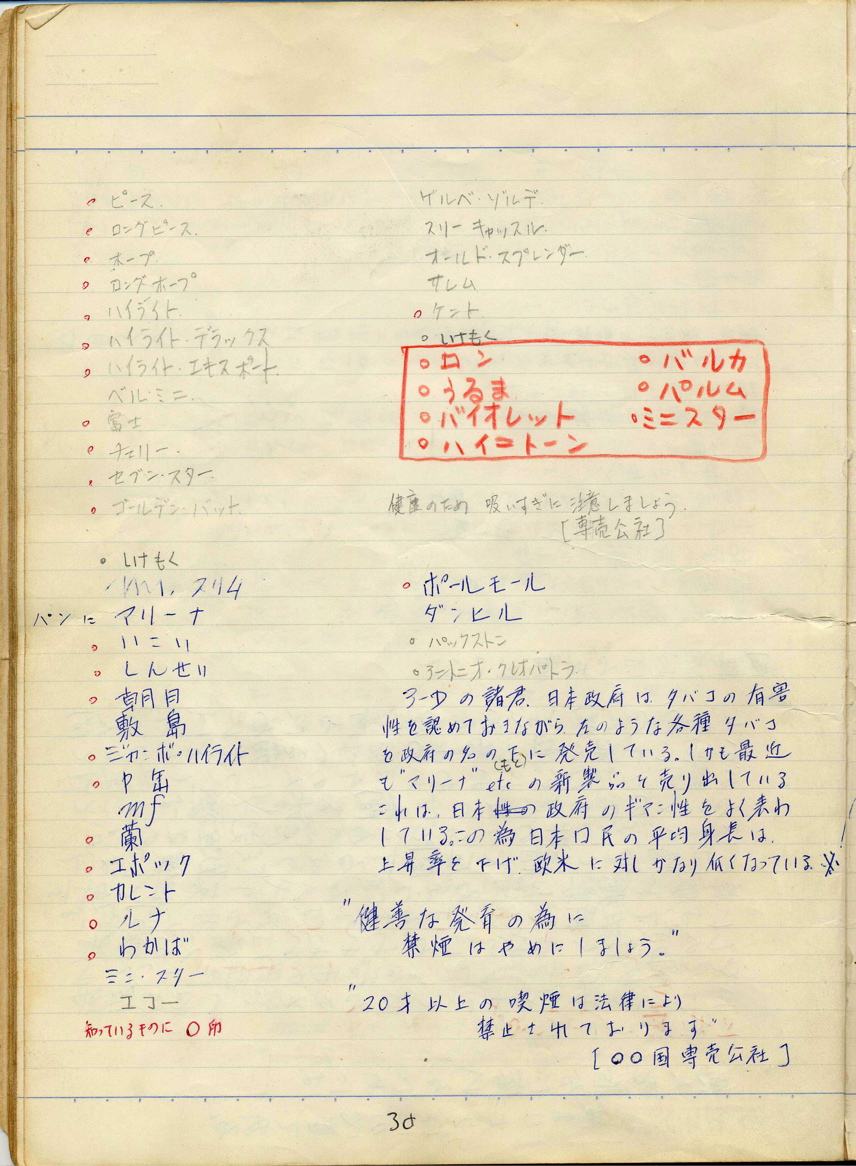 ピース.
ロングピース.
ホープ
ロングホープ
ハイライト.
ハイライト・デラックス
ハイライト・エキスポート.
ベル・ミニ.
富士
チェリー.
セブン・スター.
ゴールデン・バット.
しけもく
スリム
パンに マリーナ
いこい
しんせい
朝日
敷島
ジャンボ・ハイライト
中缶
mf
蘭
エポック
カレント
ルナ
わかば
ミニ・スター
エコー
知っているものに ○印
ゲルベ・ゾルデ.
スリーキャッスル.
オールド・スプレンダー.
サレム
ケント.
しけもく
ロン
うるま
バイオレット
ハイトーン
バルカ
パルム
ミニスター
健康のため 吸いすぎに注意しましょう.
[専売公社]
ポールモール
ダンヒル
パックストン
アントニオ・クレオパトラ.
3-Dの諸君.日本政府は、タバコの有害
性を認めておきながら、左のような各種タバコ
を政府の名の下(もと)に発売している。しかも最近
も"マリーナ" etcの新製品を売り出している
これは、日本政府のギマン性をよく表わ
している。この為日本口民の平均身長は、
上昇率を下げ.欧米に対しかなり低くなっている.※
"健善な発育の為に
禁煙はやめにしましょう。"
"20才以上の喫煙は法律により
禁止されております"
[○○国専売公社]
38